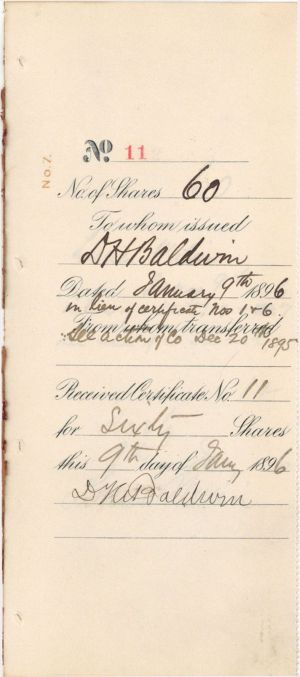 No. 7.
No 11
No. of Shares 60
To whom issued
D H Baldwin
Dated January 9th 1896
in lieu of certificate Nos 1 & 6.
From whom transferred
See action of Co Dec 20th 1895
Received Certificate No. 11
for Sixty Shares
this 9th day of Jany 1896
D H Baldwin